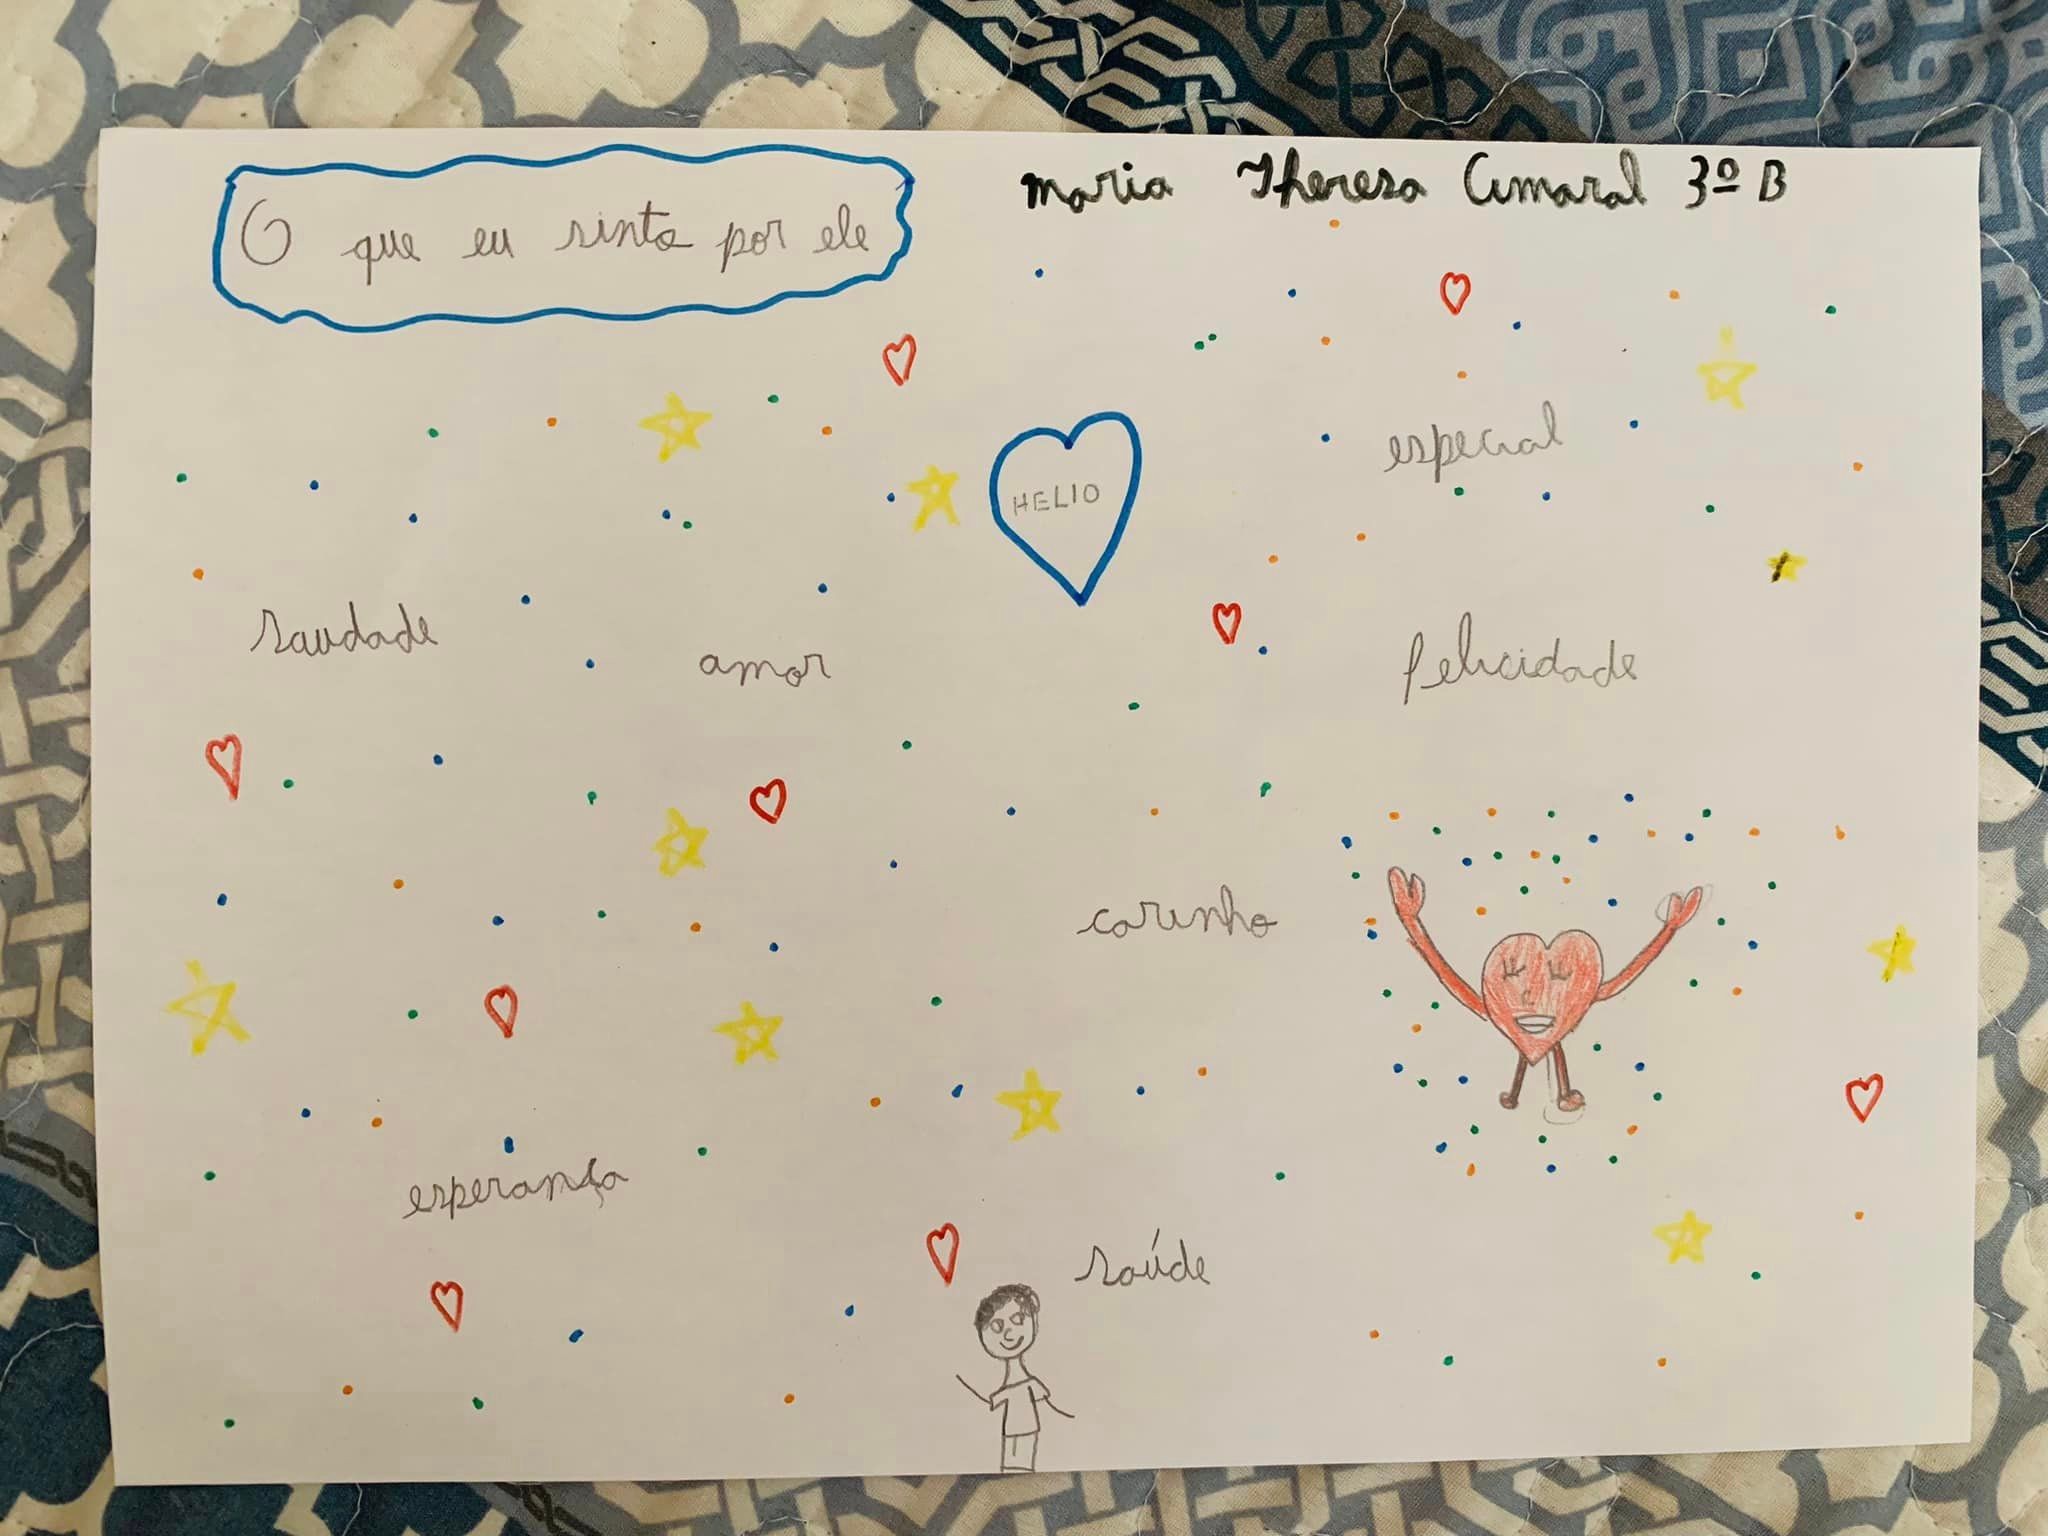 O que eu sinto por ele
Maria Theresa Amaral 3º B
HELIO
especial
saudade
amor
felicidade
carinho
esperança
saúde